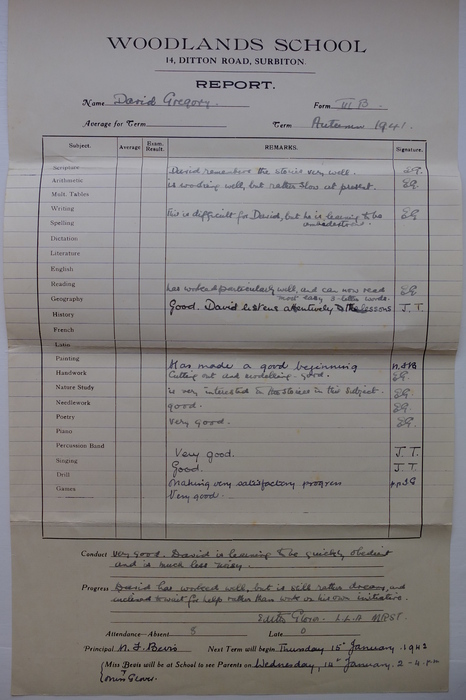 WOODLANDS SCHOOL
14, DITTON ROAD, SURBITON.
REPORT.
Name David Gregory. Form VI B.
Average for Term Term Autumn 1941.
Subject. Average Exam. Result. REMARKS. Signature.
Scripture David remembers the stories very well. EG.
Arithmetic is working well, but rather slow at present. EG.
Mult. Tables
Writing This is difficult for David, but he is learning to be EG
Spelling
Dictation
Literature
English
Reading has worked particularly well, and can now read EG
most easy 3-letter words.
Geography Good. David listens attentively to the lessons J. T.
History
French
Latin
Painting Has made a good beginning
Handwork Cutting out and modelling - good. EG.
Nature Study is very interested in the stories in this subject. EG
Needlework good. EG.
Poetry very good. EG.
Piano
Percussion Band Very good. J. T.
Singing Good. J. T.
Drill Making very satisfactory progress
Games Very good.
Conduct Very good. David is learning to be quickly obedient
and is much less noisy.
Progress David has worked well, but is still rather dreamy, and
inclined to wait for help rather than work on his own initiative.
L.L.A
Attendance—Absent 8 Late 0
Principal Next Term will begin Thursday 15th January. 1942
Miss Bevis will be at School to see Parents on Wednesday, 14th January. 2-4 p.m